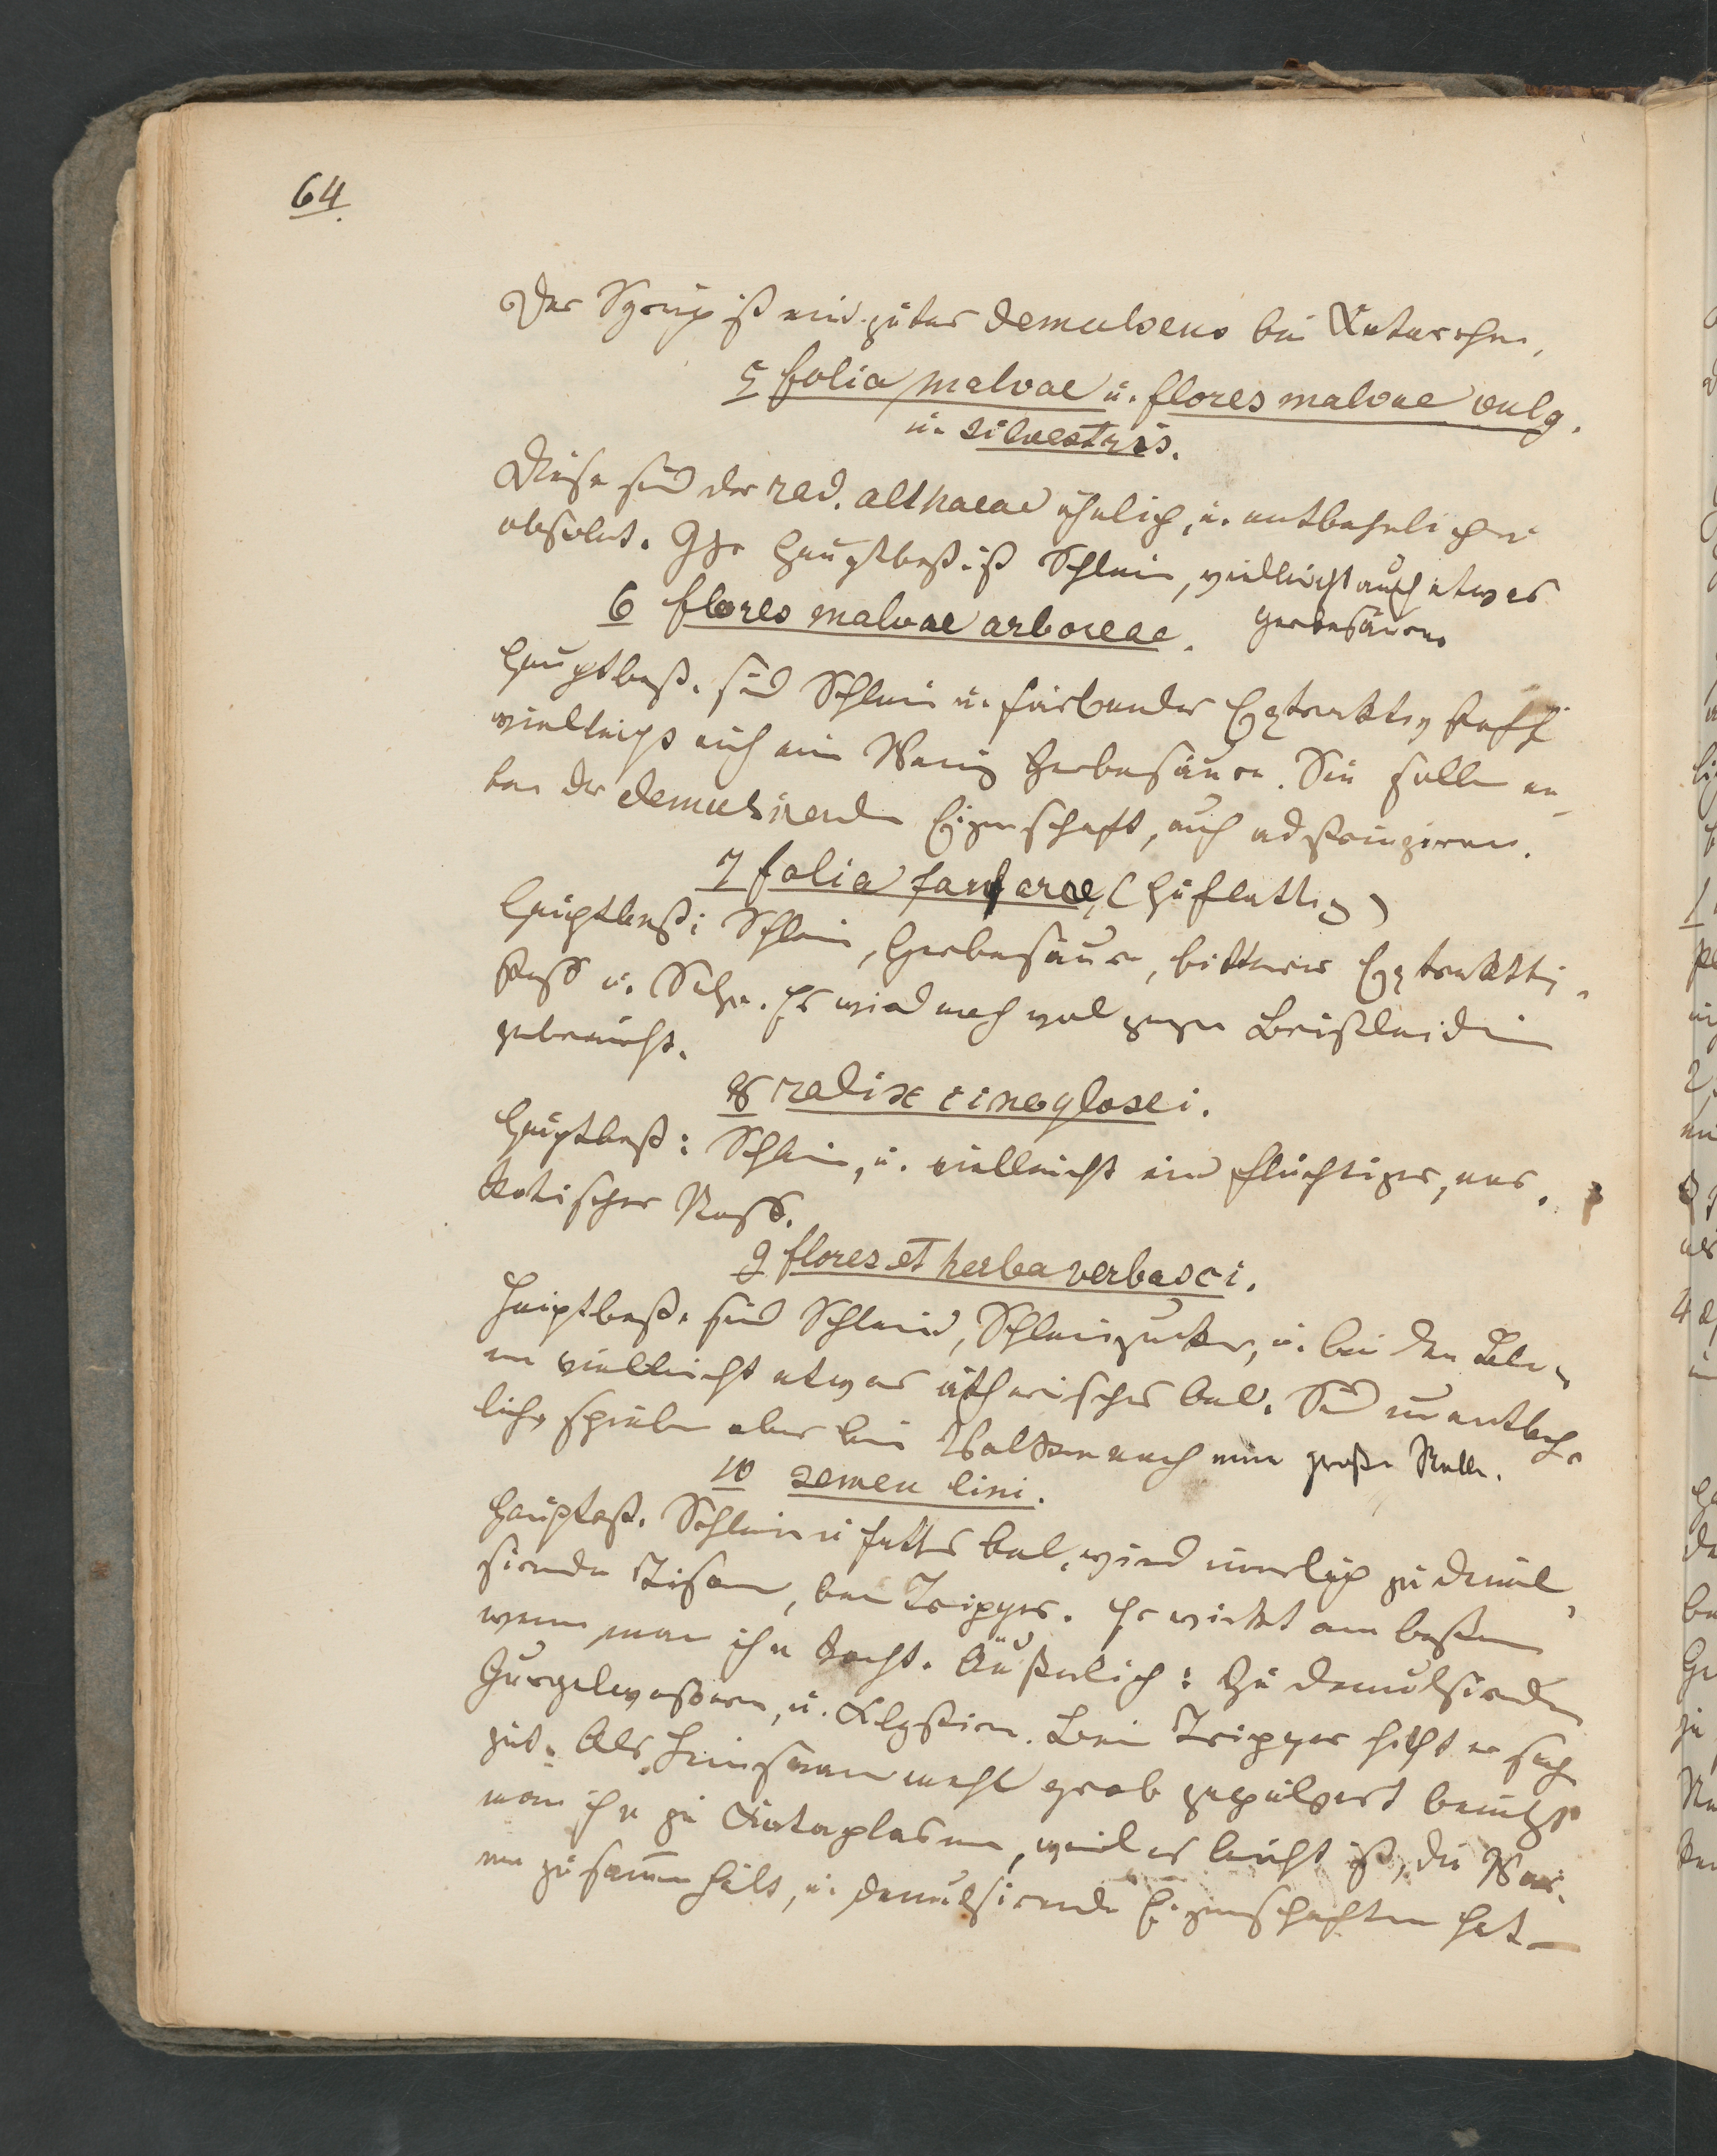 64.
Der Syrup ist ein gutes demulcens bei Katarrhen.
5 folia malvae u. flores malvae vulg.
u. silvestris.
Diese sind der rad. althaeae ähnlich, u. entbehrlich u.
obsolet. Ihr Hauptbest. ist Schleim, vielleicht auch etwas
Gerbesäure.
6 flores malvae arboreae.
Hauptbest. sind Schleim u. färbender Extraktivstoff
vielleicht auch ein Wenig Gerbesäure. Sie sollen ne-
ben der demulsirenden Eigenschaft, auch adstringiren.
7 folia farfarae, (Huflattig)
Hauptbest: Schleim, Gerbesäure, bitterer Extraktiv-
stoff u. Salze. Er wird noch wol gegen Brustleiden
gebraucht.
8 radix cinoglossi.
Hauptbest: Schleim, u. vielleicht ein flüchtiger, nar-
kotischer Stoff.
9 flores et herba verbasci.
Hauptbest. sind Schleim, Schleimzucker, u. bei den Blu-
men vielleicht etwas ätherisches Oel. Sind unentbehr-
lich, spielen aber beim Volke noch eine große Rolle.
10 semen lini.
Hauptbest. Schleim u fettes Oel, wird innerlich zu demul-
sirenden Tisanen, beim Tripper. Er wirkt am besten
wenn man ihn kocht. Äußerlich: Zu demulsirenden
Gurgelwassern, u. Klystiren. Beim Tripper hilft er sehr
gut. Als Leinsamenmehl grob gepulvert benutzt
man ihn zu Kataplasmen, weil es leicht ist, die Wär-
me zusammenhält, u. demulsirende Eigenschaften hat_